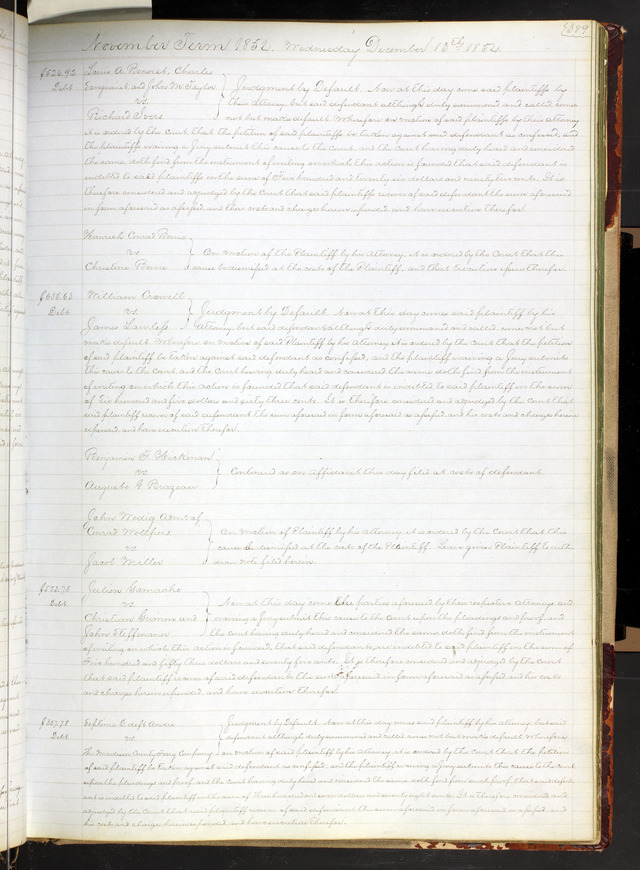 389
November Term 1852. Wednesday December 15th 1852
$526.92 Louis A Benoist, Charles
Debt Sanguinet and John M Taylor } Judgment by Default. Now at this day come said plaintiffs by
vs their attorney but said defendant although duly summoned and called comes
Richard Ivers not but makes default. Wherefore on motion of said plaintiffs by their attorney
it is ordered by the Court that the petition of said plaintiffs be taken against said defendant as confessed, and
the plaintiffs waiving a Jury submit this cause to the Court and the Court having duly heard and considered
the same doth find from the instrument of writing on which this action is founded that said defendant is
indebted to said plaintiffs in the sum of Five hundred and twenty six dollars and ninety two cents. It is
therefore considered and adjudged by the Court that said plaintiffs recover of said defendant the sum aforesaid
in form aforesaid as assessed and their costs and charges herein expended, and have execution therefor.
Heinrich Conrad
vs } On motion of the Plaintiff by his Attorney, it is ordered by the Court that this
Christine cause be dismissed at the costs of the Plaintiff, and that Execution issue therefor.
$605.63 William Crowell
Debt. vs } Judgment by Default. Now at this day comes said plaintiff by his
James Lawless Attorney but said defendant although duly summoned and called comes not but
makes default. Wherefore on motion of said Plaintiff by his Attorney it is ordered by the Court that the petition
of said plaintiff be taken against said defendant as confessed, and the plaintiff waiving a Jury submits
this cause to the Court and the Court having duly heard and considered the same doth find from the instrument
of writing on which this action is founded that said defendant is indebted to said plaintiff in the sum
of Six hundred and five dollars and sixty three cents. It is therefore considered and adjudged by the Court that
said plaintiff recover of said defendant the sum aforesaid in form aforesaid as assessed and his costs and charges herein
expended, and have execution therefor.
Benjamin F Hickman
vs } Continued on an affidavit this day filed at costs of defendant
Auguste G Brazeau
John Wedig Admr of
Conrad } On Motion of Plaintiff by his Attorney it is ordered by the Court that this
vs cause be dismissed at the costs of the Plaintiff. Leave given Plaintiff to with
Jacob Miller draw note filed herein.
$553.75 Julien Gamache
Debt. vs } Now at this day come the parties aforesaid by their respective Attorneys and
Christian Grimm and waiving a Jury submit this cause to the Court upon the pleadings and proof, and
John the Court having duly heard and considered the same, doth find from the instrument
of writing on which this action is founded, that said defendants are indebted to said plaintiff in the sum of
Five hundred and fifty three dollars and seventy five cents. It is therefore considered and adjudged by the Court
that said plaintiff recover of said defendants the sum aforesaid in form aforesaid as assessed and his costs
and charges herein expended, and have execution therefor.
$307.78 André
Debt vs } Judgment by Default. Now at this day comes said plaintiff by his attorney but said
defendant although duly summoned and called comes not but makes default. Wherefore
The Madison County Ferry Company on motion of said plaintiff by his attorney it is ordered by the Court that the petition
of said plaintiff be taken against said defendant as confessed, and the plaintiff waiving a Jury submits this cause to the Court
upon the pleadings and proof, and the Court having duly heard and considered the same doth find from such proof that said defend
ant is indebted to said plaintiff in the sum of Three hundred and seven dollars and seventy eight cents. It is therefore considered and
adjudged by the Court that said plaintiff recover of said defendant the sum aforesaid in form aforesaid as assessed, and
his costs and charges herein expended and have execution therefor.